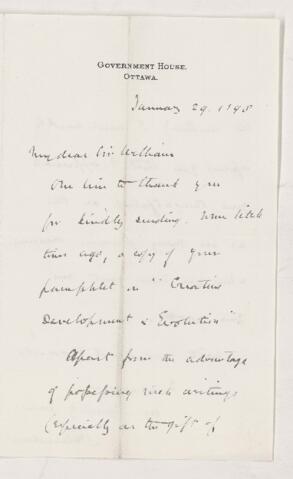 GOVERNMENT HOUSE.
OTTAWA.
January 29. 1898
My dear Sir William
One line to thank you
for kindly sending, some little
time ago, a copy of your
pamphlet on "Creative
Development & Evolution"
Apart from the advantage
of possessing such writings
(especially as the gift of